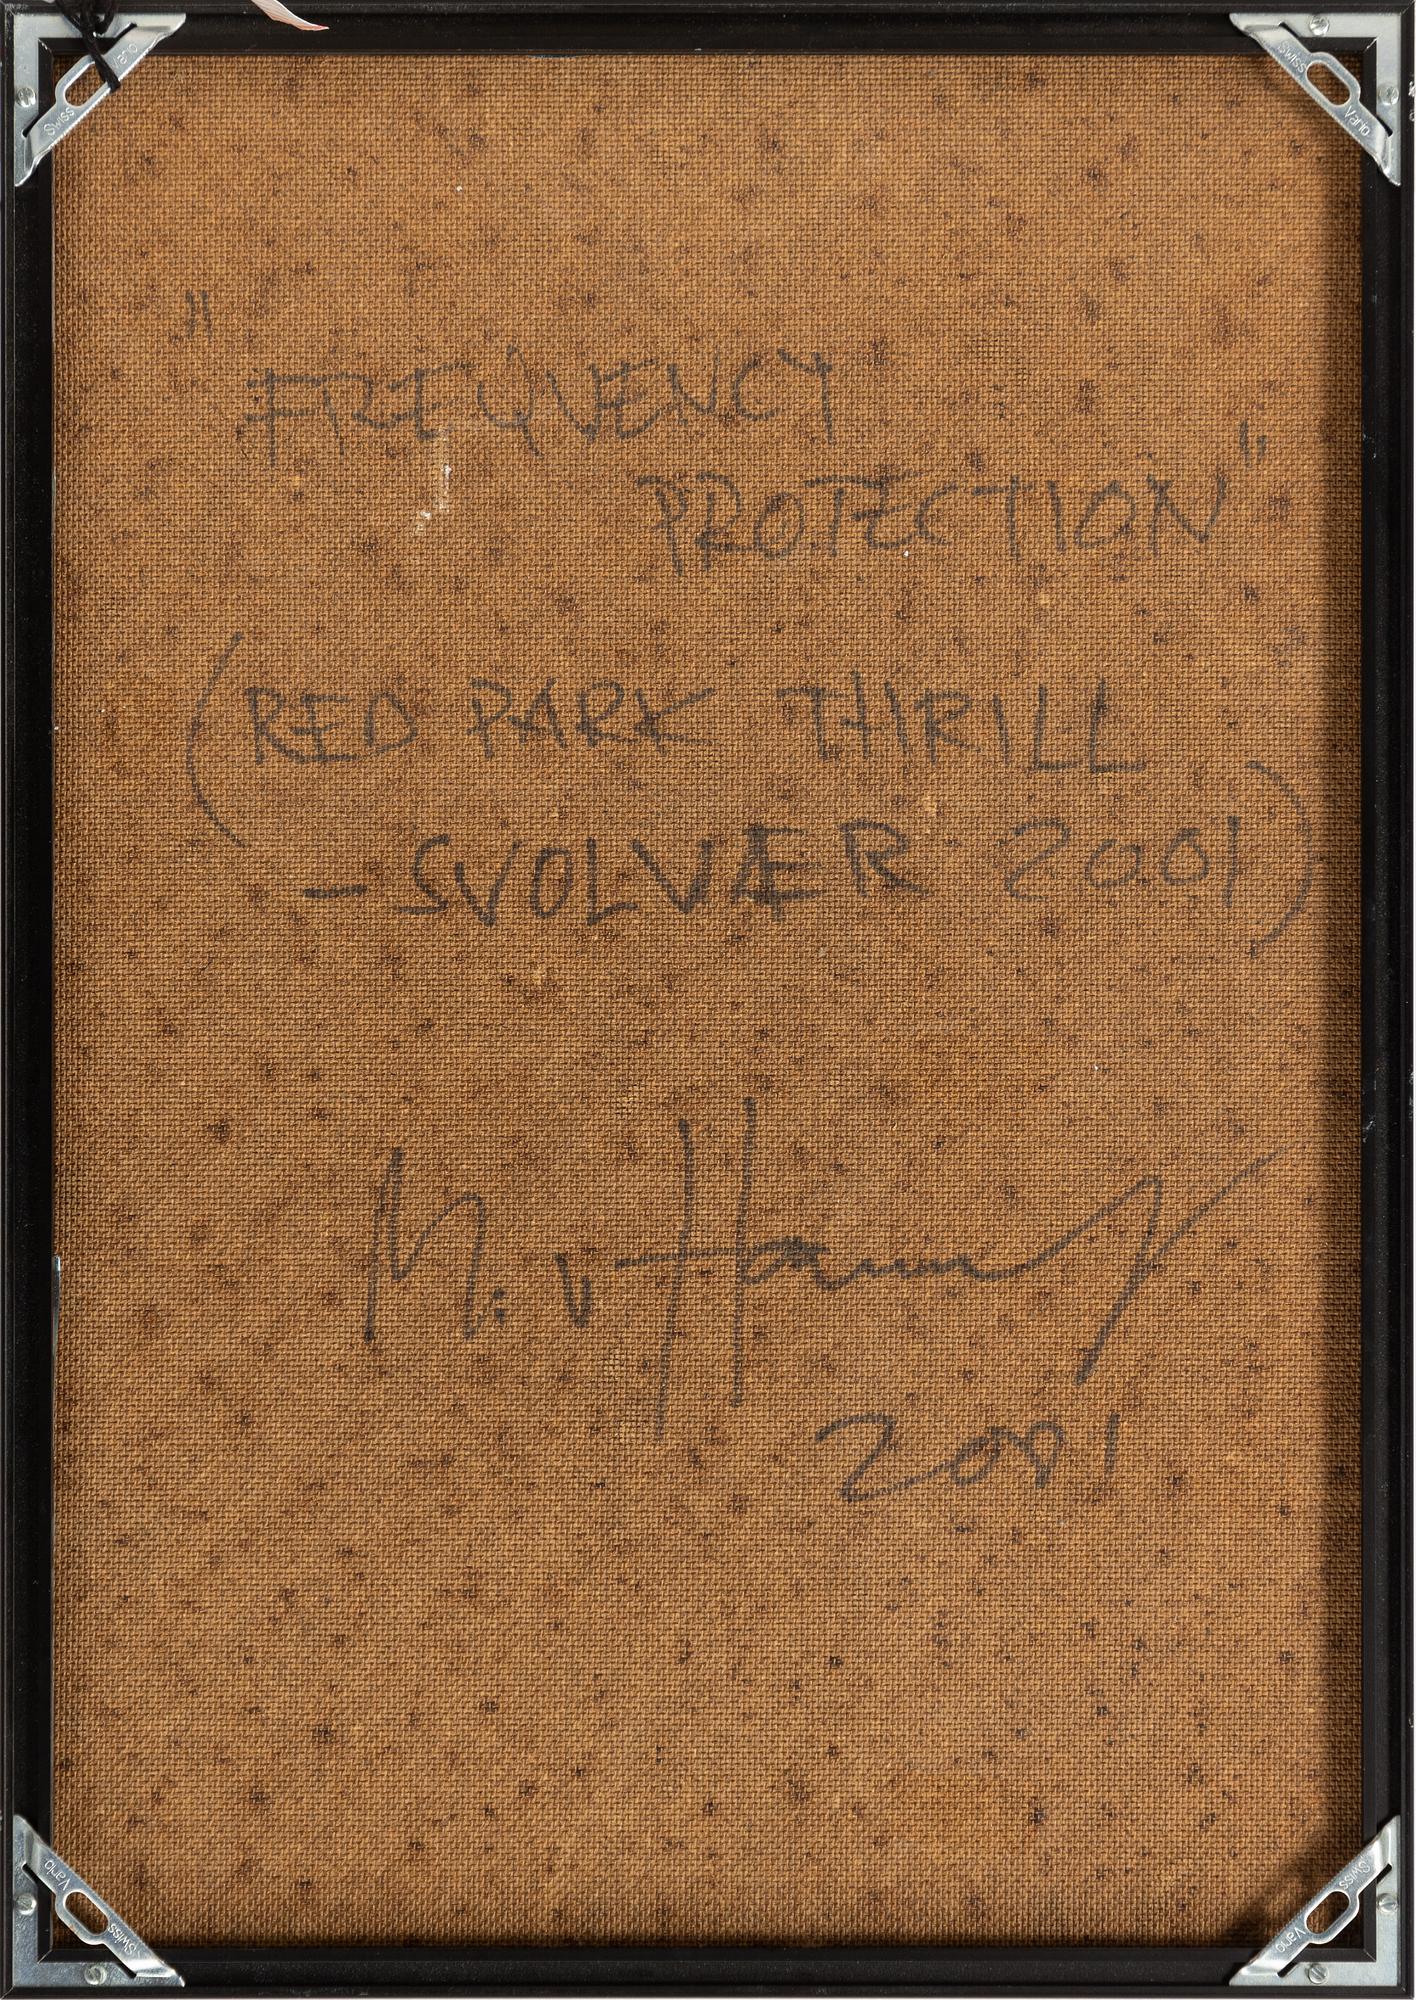 Swiss Vario
Swiss Vario
"FREQUENCY
PROTECTION"
(RED PARK THRILL
-SVOLVÆR 2001)
M. v Hausswolff
2001
Vario Swiss
Swiss Vario